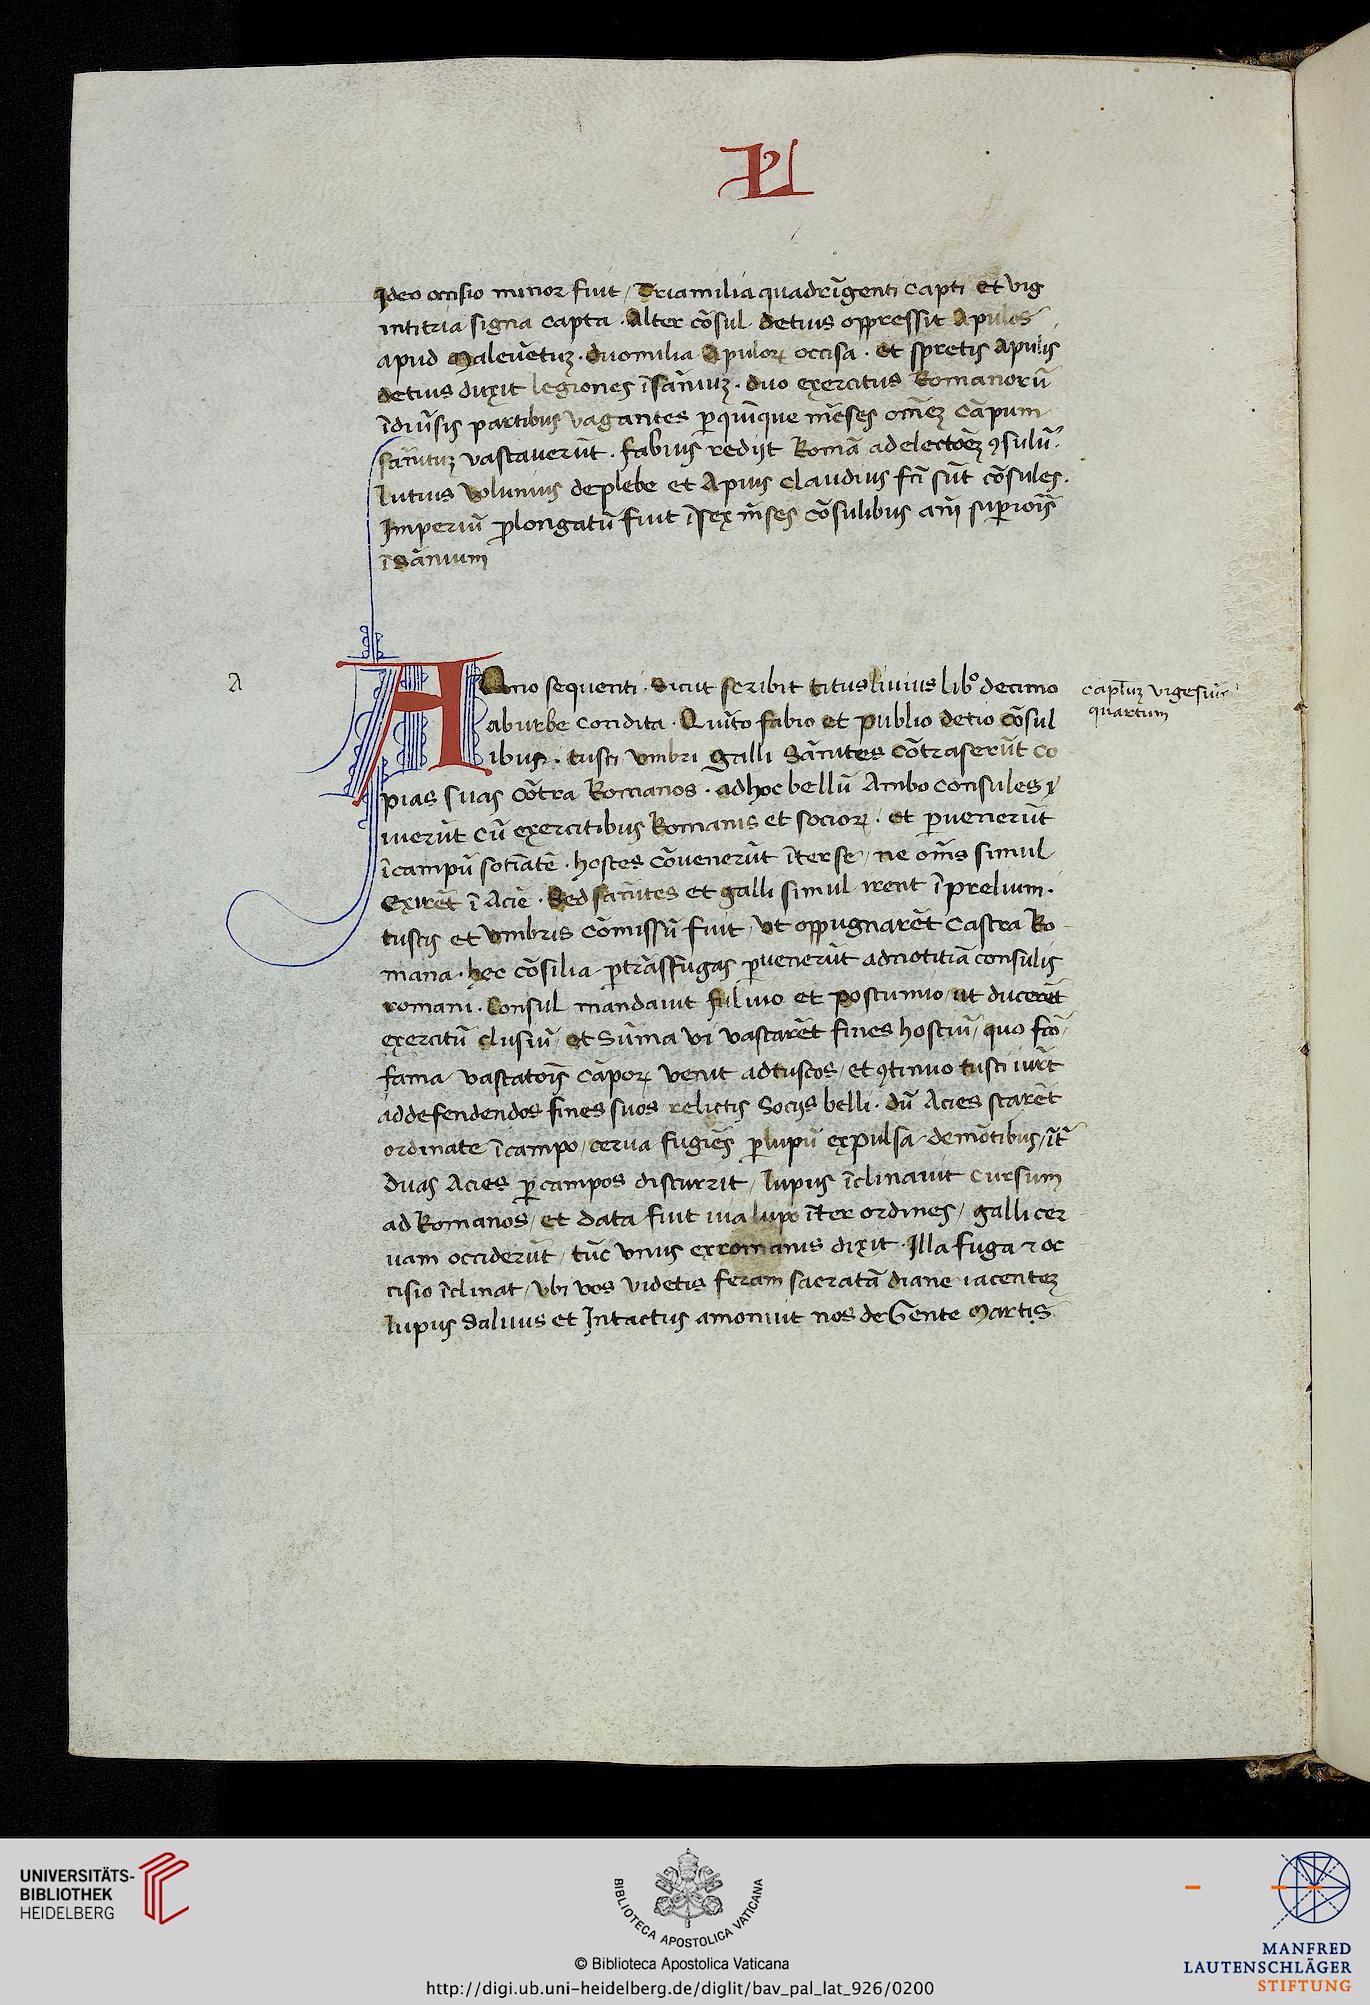 L
Ideo occisio minor fuit / Triamilia quadrīgenti capti et vig
intitria signa capta . Alter cōsul detius oppressit Apulos
apud Maleuētuȝ . duomilia Apuloꝝ occisa . et spretis Apulis
detius duxit legiones ī sāniuȝ . duo exercitus Romanorū
ī diūsis partibus vagantes ꝑ quīque mēses omēȝ cāpum
sānituȝ vastauerūt . fabius redijt Romā ad electōēȝ ꝯsulū .
lutius volumius deplebe et Apius claudius fc̄i sūt cōsules .
Imperiū ꝓlongatū fuit ī sex mēses cōsulibus an̄i suꝑiorīs
ī Sānium
a
Anno sequenti . Sicut scribit titus liuius libº decimo
aburbe condita . Quīto fabio et publio detio cōsul
ibus . tusci vmbri galli Sānites cōtraserūt co
pias suas cōtra Romanos . ad hoc bellū Ambo consules
iuerūt cū exercitibus Romanis et socioꝝ . et ꝑuenerūt
ī campū sotīatē . hostes cōuenerūt īter se / ne om̄s simul
exirēt ī Aciē . Sed sānites et galli simul irent ī prelium .
tuscis et vmbris cōmissū fuit / vt oppugnarēt castra Ro
mana . hec cōsilia ꝑ trāsfugas ꝑuenerūt ad notitiā consulis
romani . Consul mandauit fuluio et postumio / ut ducerēt
exercitū clusiū / et Sūma vi vastarēt fines hostiū / quo fc̄o /
fama vastatoīs cāpoꝝ venit ad tuscos / et ꝯtinuo tusci iuēt
ad defendendos fines suos relictis Socijs belli . dū Acies starēt
ordinate ī campo / cerua fugiēs ꝑ lupū expulsa de mōtibus / īt̄
duas Acies ꝑ campos discurrit / lupus īclinauit cursum
ad Romanos / et data fuit uia lupo īter ordines / galli cer
uam occiderūt / tūc vnus ex romanis dixit . Illa fuga ⁊ oc
cisio īclinat / vbi vos videtis feram sacratā diane iacenteȝ
lupus Saluus et Intactus amonuit nos de Gente Martis
capl̄uȝ vigesiū
quartum
UNIVERSITÄTS-
BIBLIOTHEK
HEIDELBERG
BIBLIOTECA APOSTOLICA VATICANA
© Biblioteca Apostolica Vaticana
http://digi.ub.uni-heidelberg.de/diglit/bav_pal_lat_926/0200
MANFRED
LAUTENSCHLÄGER
STIFTUNG